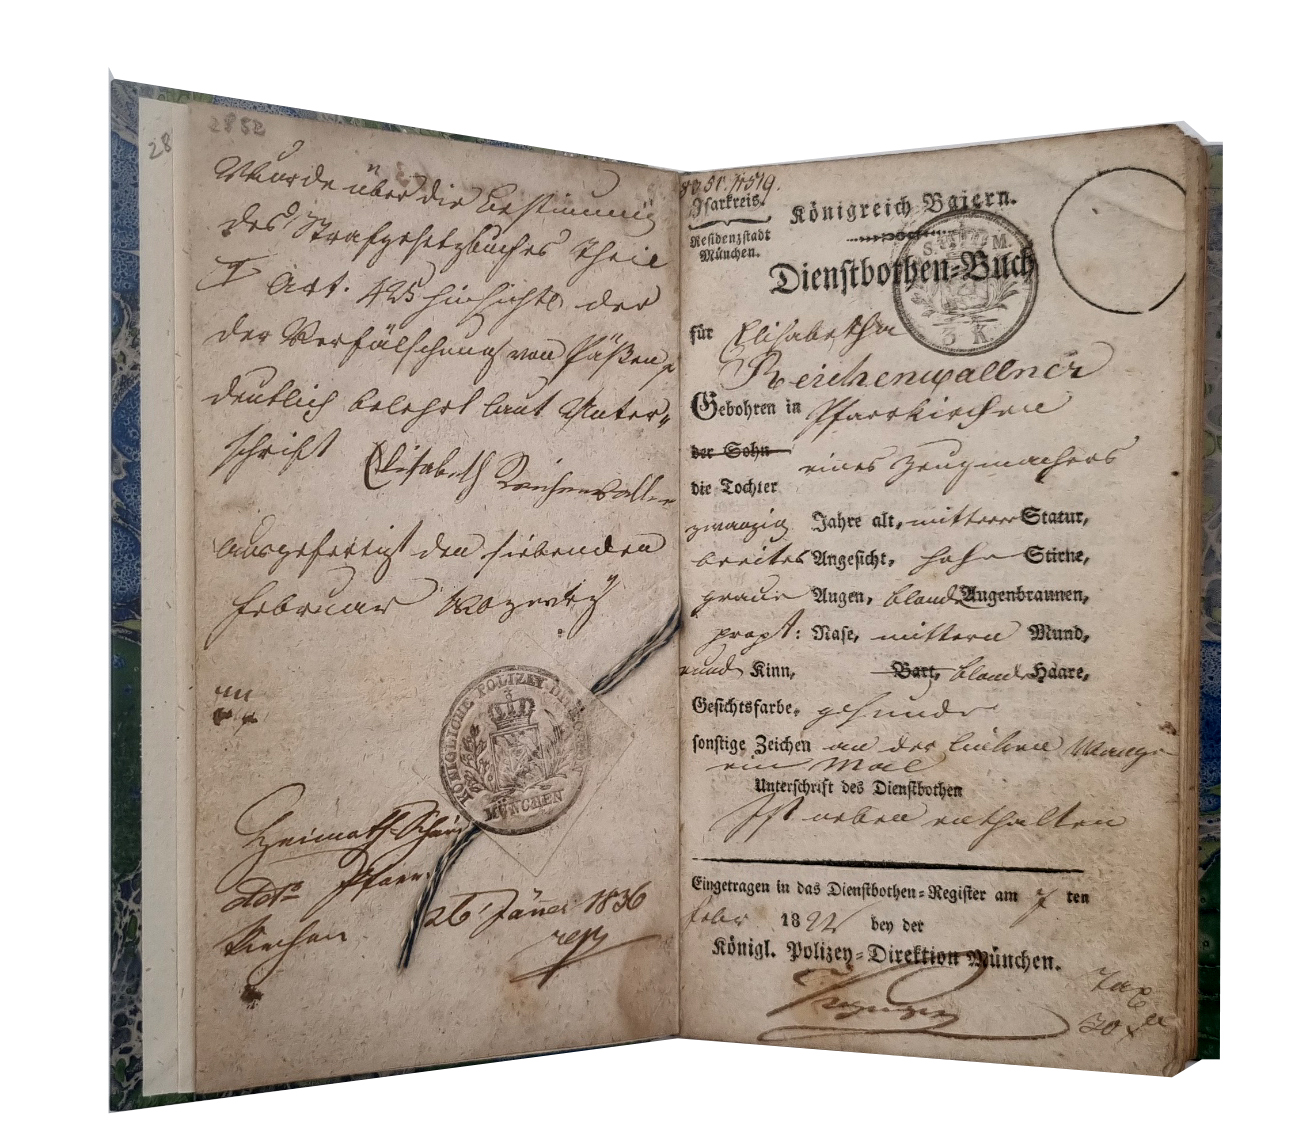 28
2852
Wurde über die Bestimmung
des Strafgesetzbuches Theil
I Art. 425 hinsichtl. der
der Verfälschung von Päßen
deutlich belehrt laut Unter=
schrift Elisabeth Reichenwaller
Ausgefertigt den siebenden
Februar
KÖNIGLICHE POLIZEY DIRECTION
MÜNCHEN
Heimath Schein
ddto Pfarr
kirchen 26 Jäner 1836
Isarkreis.
Königreich Baiern.
Residenzstadt
München.
S. M.
Dienstbothen=Buch
3 K.
für Elisabetha
Reichenwallner
Gebohren in Pfarrkirchen
der Sohn
eines Zeugmachers
die Tochter
zwanzig Jahre alt, mitterer Statur,
breites Angesicht, hohe Stirne,
graue Augen, blonde Augenbraunen,
propt: Nase, mittern Mund,
rund Kinn, Bart, blonde Haare,
Gesichtsfarbe, gesunde
sonstige Zeichen an der linken Wange
ein Mal
Unterschrift des Dienstbothen
Ist neben enthalten
Eingetragen in das Dienstbothen=Register am 7 ten
Febr 1822 bey der
Königl. Polizey=Direktion München.
Tax
30 x